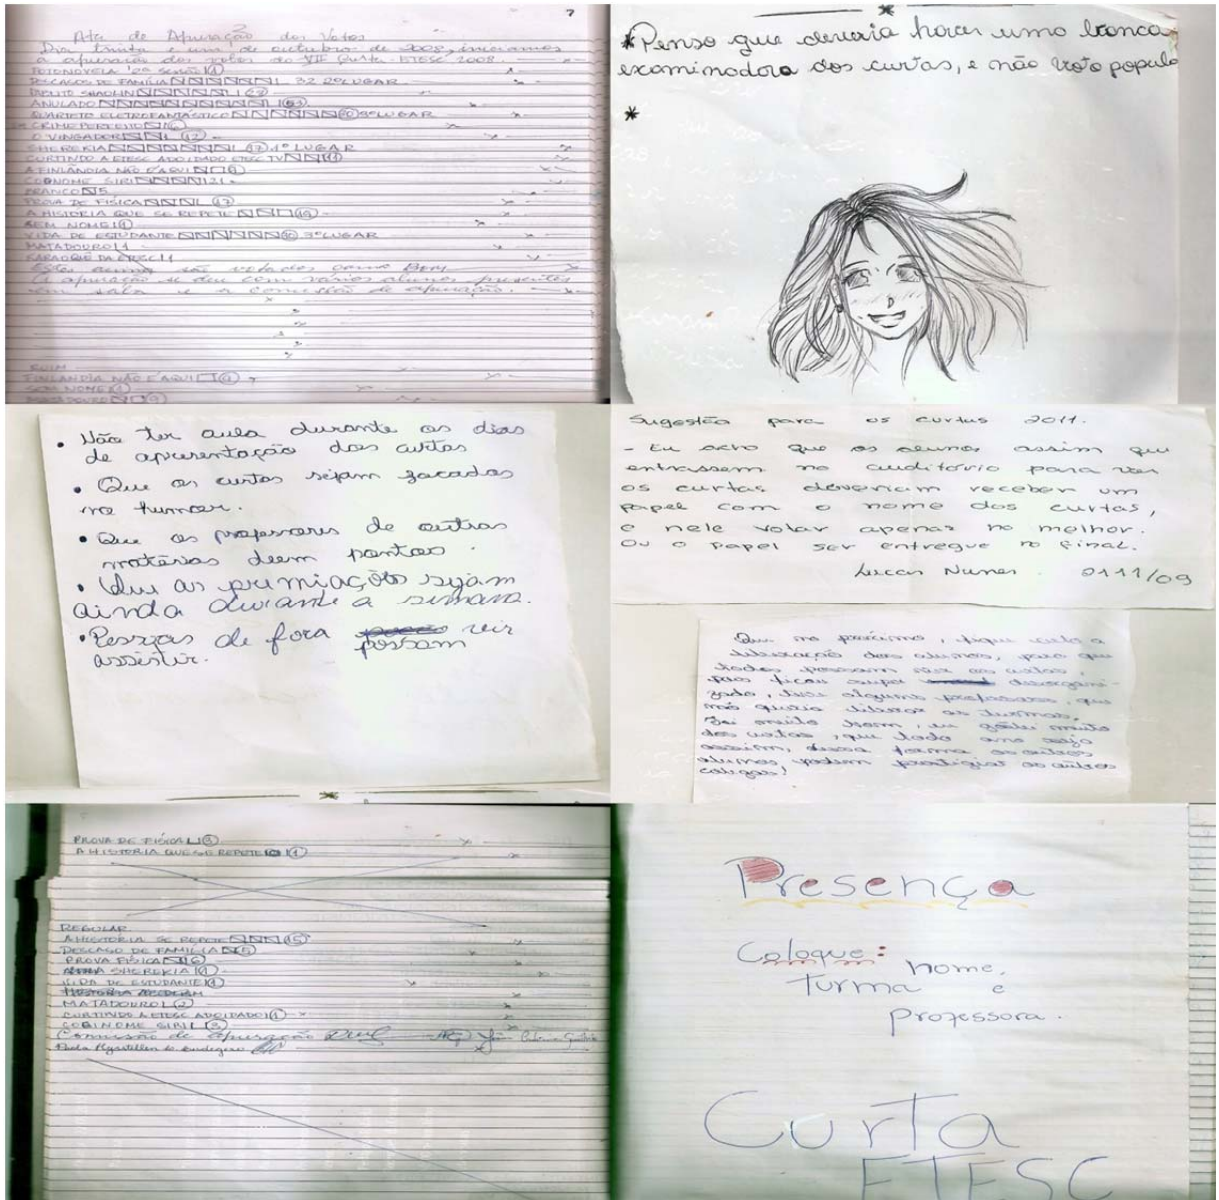 7
Ata de Apuração dos Votos
Dia trinta e um de outubro de 2008, iniciamos
a apuração dos votos do VII Curta ETESC 2008.
FOTONOVELA
DESCASOS DE FAMÍLIA 32 2º LUGAR
SHAOLIN
ANULADO
QUARTETO ELETROFANTÁSTICO 3º LUGAR
CRIME PERFEITO
O VINGADOR 12
SHEREKIA 1º LUGAR
CURTINDO A ETESC ADOIDADO ETESC TV
A FINLÂNDIA NÃO É AQUI
COGNOME SIRI 21
BRANCO 5
PROVA DE FÍSICA
A HISTÓRIA QUE SE REPETE
SEM NOME 1
VIDA DE ESTUDANTE 3º LUGAR
MATADOURO 1
Estes acima são votados como Bom
a apuração se deu com vários alunos presentes
em sala e a comissão de apuração.
RUIM
FINLANDIA NÃO É AQUI
SEM NOME 1
MATADOURO
* Penso que deveria haver uma banca
examinadora dos curtas, e não voto popula
*
• Não ter aula durante os dias
de apresentação dos curtas
• Que os curtas sejam focados
no humor.
• Que os professores de outras
matérias deem pontos.
• Que as premiações sejam
ainda durante a semana.
• Pessoas de fora possam vir
assistir.
Sugestão para os curtas 2011.
- Eu acho que os alunos assim que
entrassem no auditório para ver
os curtas deveriam receber um
papel com o nome dos curtas,
e nele votar apenas no melhor.
Ou o papel ser entregue no final.
Lucas Nunes. 2111/09
Que no próximo, fique certo a
liberação dos alunos, para que
todos possam ver os curtas,
pois ficou super desorgani-
zado, teve alguns professores, que
não queria liberar as turmas.
Foi muito bom, eu gostei muito
dos curtas, que todo ano seja
assim, dessa forma os outros
alunos, podem prestigiar os outros
colegas!
PROVA DE FÍSICA 3
A HISTORIA QUE SE REPETE 1
REGULAR
A HISTORIA SE REPETE 15
DESCASO DE FAMÍLIA 5
PROVA FÍSICA 6
SHEREKIA 1
VIDA DE ESTUDANTE 1
MATADURO 2
CURTINDO A ETESC ADOIDADO 1
COGINOME SIRI 3
Comissão de apuração
Presença
Coloque: nome,
turma e
professora.
Curta
ETESC